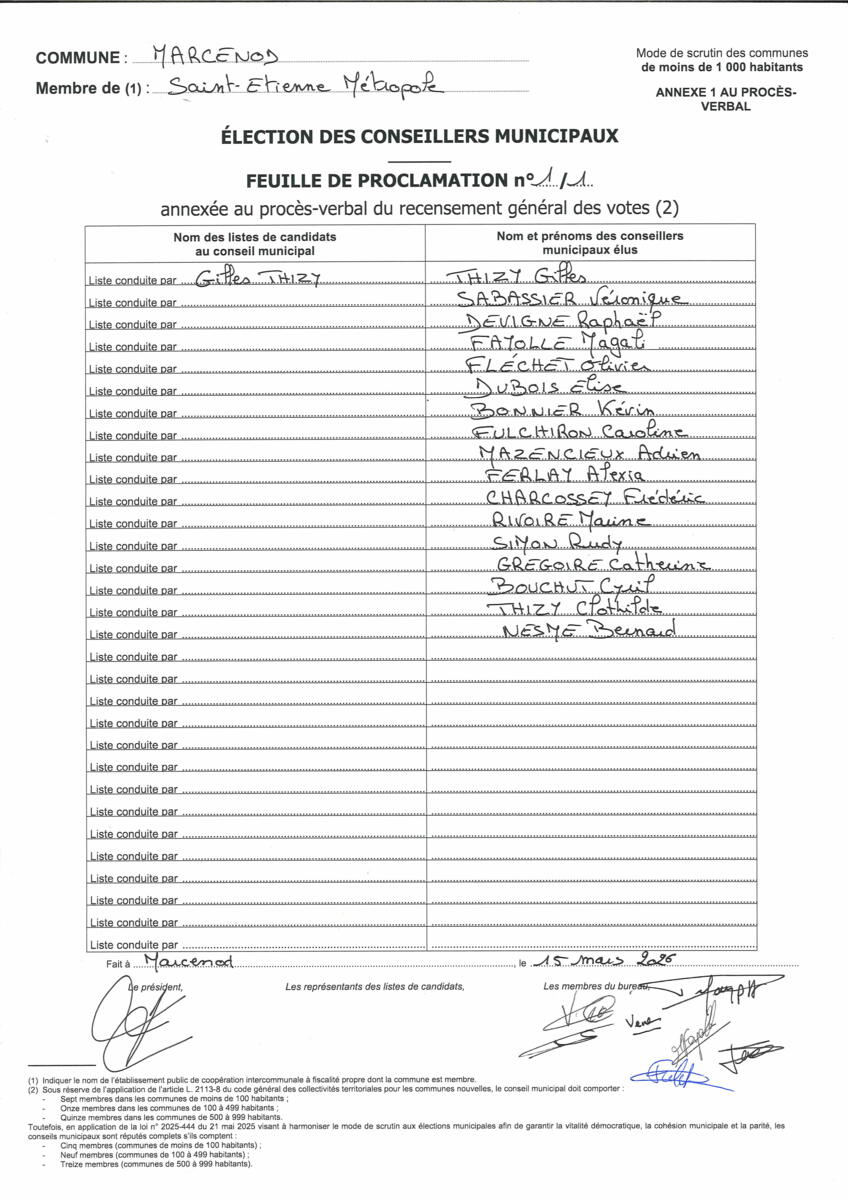 COMMUNE : MARCENOD
Mode de scrutin des communes
de moins de 1 000 habitants
Membre de (1) : Saint-Etienne Métropole
ANNEXE 1 AU PROCÈS-
VERBAL
ÉLECTION DES CONSEILLERS MUNICIPAUX
FEUILLE DE PROCLAMATION n° 1 / 1
annexée au procès-verbal du recensement général des votes (2)
Nom des listes de candidats
au conseil municipal
Nom et prénoms des conseillers
municipaux élus
Liste conduite par Gilles THIZY THIZY Gilles
Liste conduite par SABASSIER Véronique
Liste conduite par DEVIGNE Raphaël
Liste conduite par FAYOLLE Magali
Liste conduite par FLÉCHET Olivier
Liste conduite par DUBOIS Elise
Liste conduite par BONNIER Kévin
Liste conduite par FULCHIRON Caroline
Liste conduite par MAZENCIEUX Adrien
Liste conduite par FERLAY Alexia
Liste conduite par CHARCOSSEY Frédéric
Liste conduite par RIVOIRE Marine
Liste conduite par SIMON Rudy
Liste conduite par GREGOIRE Catherine
Liste conduite par BOUCHUT Cyril
Liste conduite par THIZY Clothilde
Liste conduite par NESME Bernard
Liste conduite par
Liste conduite par
Liste conduite par
Liste conduite par
Liste conduite par
Liste conduite par
Liste conduite par
Liste conduite par
Liste conduite par
Liste conduite par
Liste conduite par
Liste conduite par
Liste conduite par
Liste conduite par
Fait à Marcenod, le 15 mars 2026
Le président, Les représentants des listes de candidats, Les membres du bureau,
(1) Indiquer le nom de l'établissement public de coopération intercommunale à fiscalité propre dont la commune est membre.
(2) Sous réserve de l'application de l'article L. 2113-8 du code général des collectivités territoriales pour les communes nouvelles, le conseil municipal doit comporter :
- Sept membres dans les communes de moins de 100 habitants ;
- Onze membres dans les communes de 100 à 499 habitants ;
- Quinze membres dans les communes de 500 à 999 habitants.
Toutefois, en application de la loi n° 2025-444 du 21 mai 2025 visant à harmoniser le mode de scrutin aux élections municipales afin de garantir la vitalité démocratique, la cohésion municipale et la parité, les
conseils municipaux sont réputés complets s'ils comptent :
- Cinq membres (communes de moins de 100 habitants) ;
- Neuf membres (communes de 100 à 499 habitants) ;
- Treize membres (communes de 500 à 999 habitants).